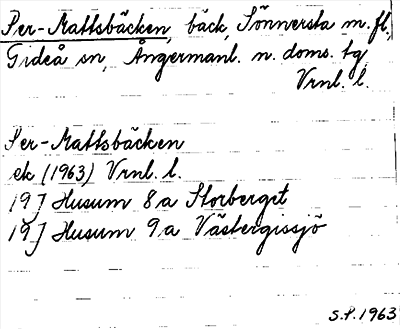 Per-Mattsbäcken, bäck, Sönnersta m. fl,
Gideå sn, Ångermanl. n. doms. tg
Vrnl. l.
Per-Mattsbäcken
ek (1963) Vrnl. l.
19 J Husum 8a Storberget
19 J Husum 9a Västergissjö
S.P. 1963